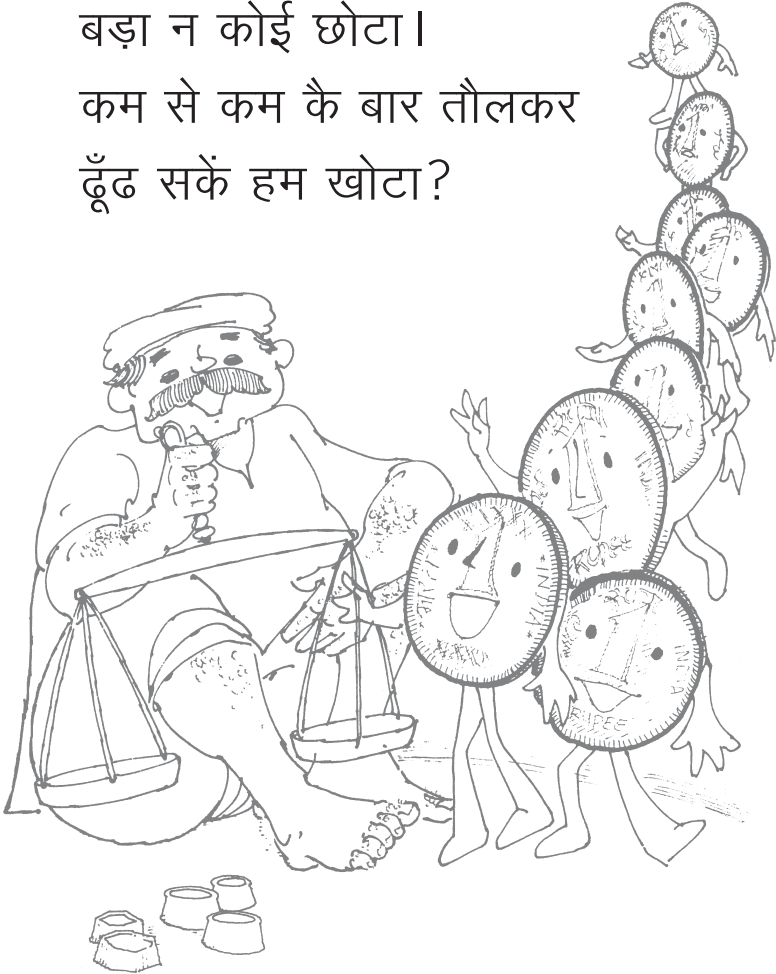 बड़ा न कोई छोटा।
कम से कम कै बार तौलकर
ढूँढ सकें हम खोटा?
RUPEE